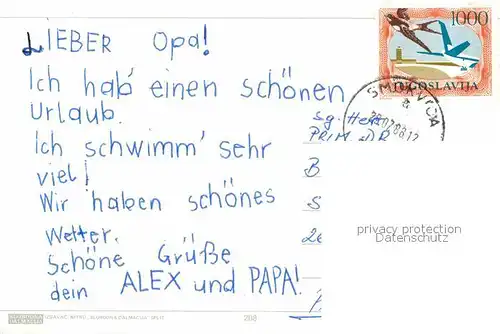 LIEBER Opa!
Ich hab' einen schönen
Urlaub.
Ich schwimm' sehr
viel!
Wir haben schönes
Wetter.
Schöne Grüße
dein ALEX und PAPA!
1000
JUGOSLAVIJA
Sg. Herr
PRIM. DR
B
S
privacy protection
Datenschutz
208